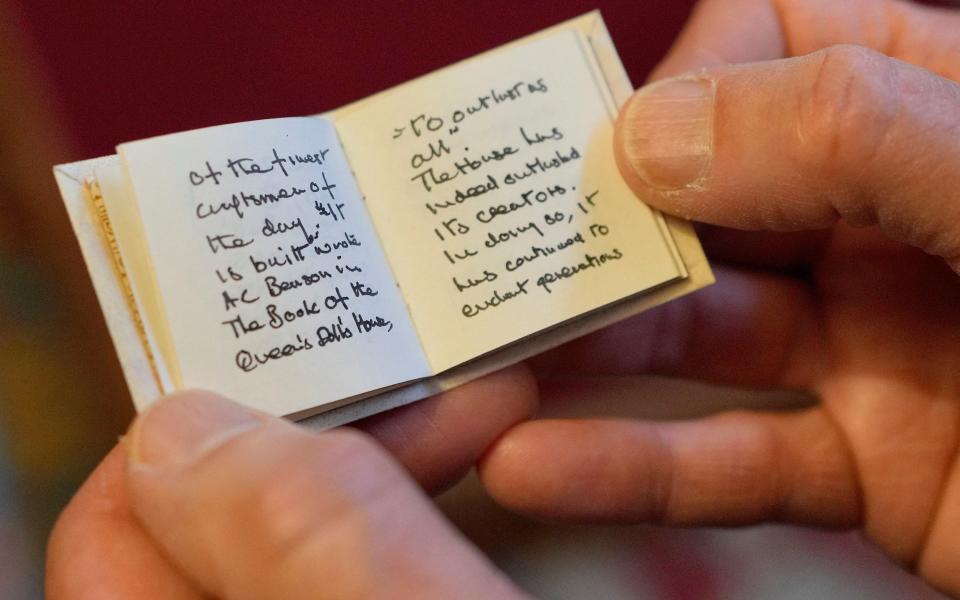 of the finest
craftsmen of
the day. "It
is built" wrote
AC Benson in
The Book of the
Queen's Dolls House,
"to outlast us
all".
The House has
indeed outlasted
its creators.
In doing so, it
has continued to
enchant generations